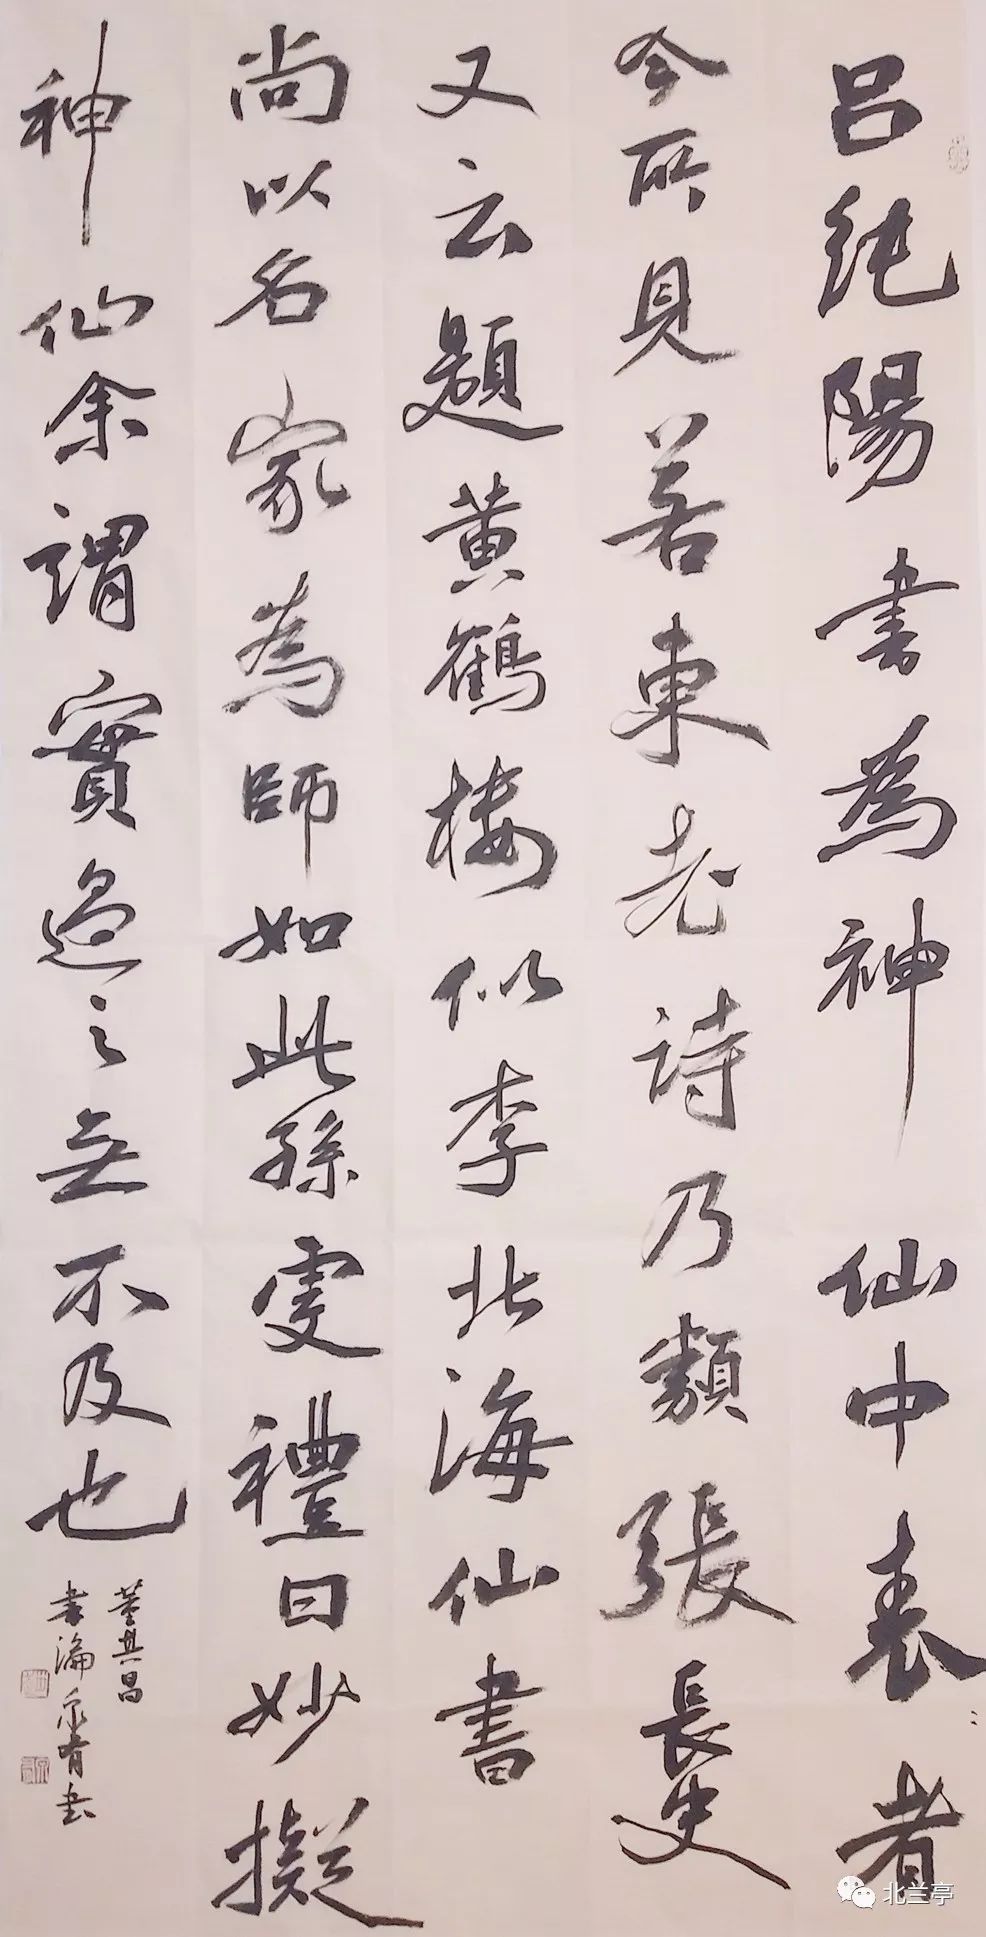 吕纯陽書為神仙中表〻者
今所見若東老詩乃類張長史
又云題黄鶴楼似李北海仙書
尚以名家為師如此孫虔禮曰妙擬
神仙余謂實過之無不及也
董其昌
北兰亭